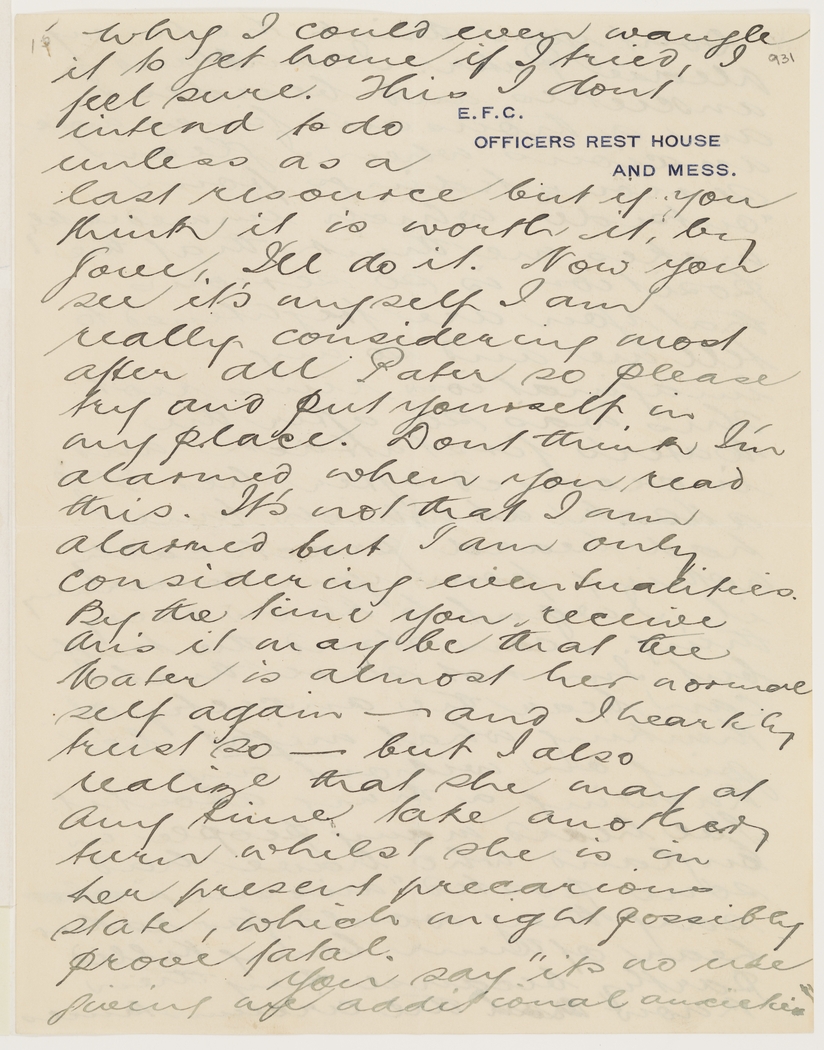 Why I could even wangle
it to get home if I tried, I
931
feel sure. This I dont
E.F.C.
OFFICERS REST HOUSE
AND MESS.
intend to do
unless as a
last resource but if you
think it is worth it, by
Jove, I'll do it. Now you
see it's myself I am
really considering most
after all Pater so please
try and put yourself in
my place. Dont think I'm
alarmed when you read
this. It's not that I am
alarmed but I am only
considering eventualities.
By the time you receive
this it may be that the
Mater is almost her normal
self again — and I heartily
trust so — but I also
realize that she may at
any time take another
turn whilst she is in
her present precarious
state, which might possibly
prove fatal.
You say "it's no use
giving me additional anxieties